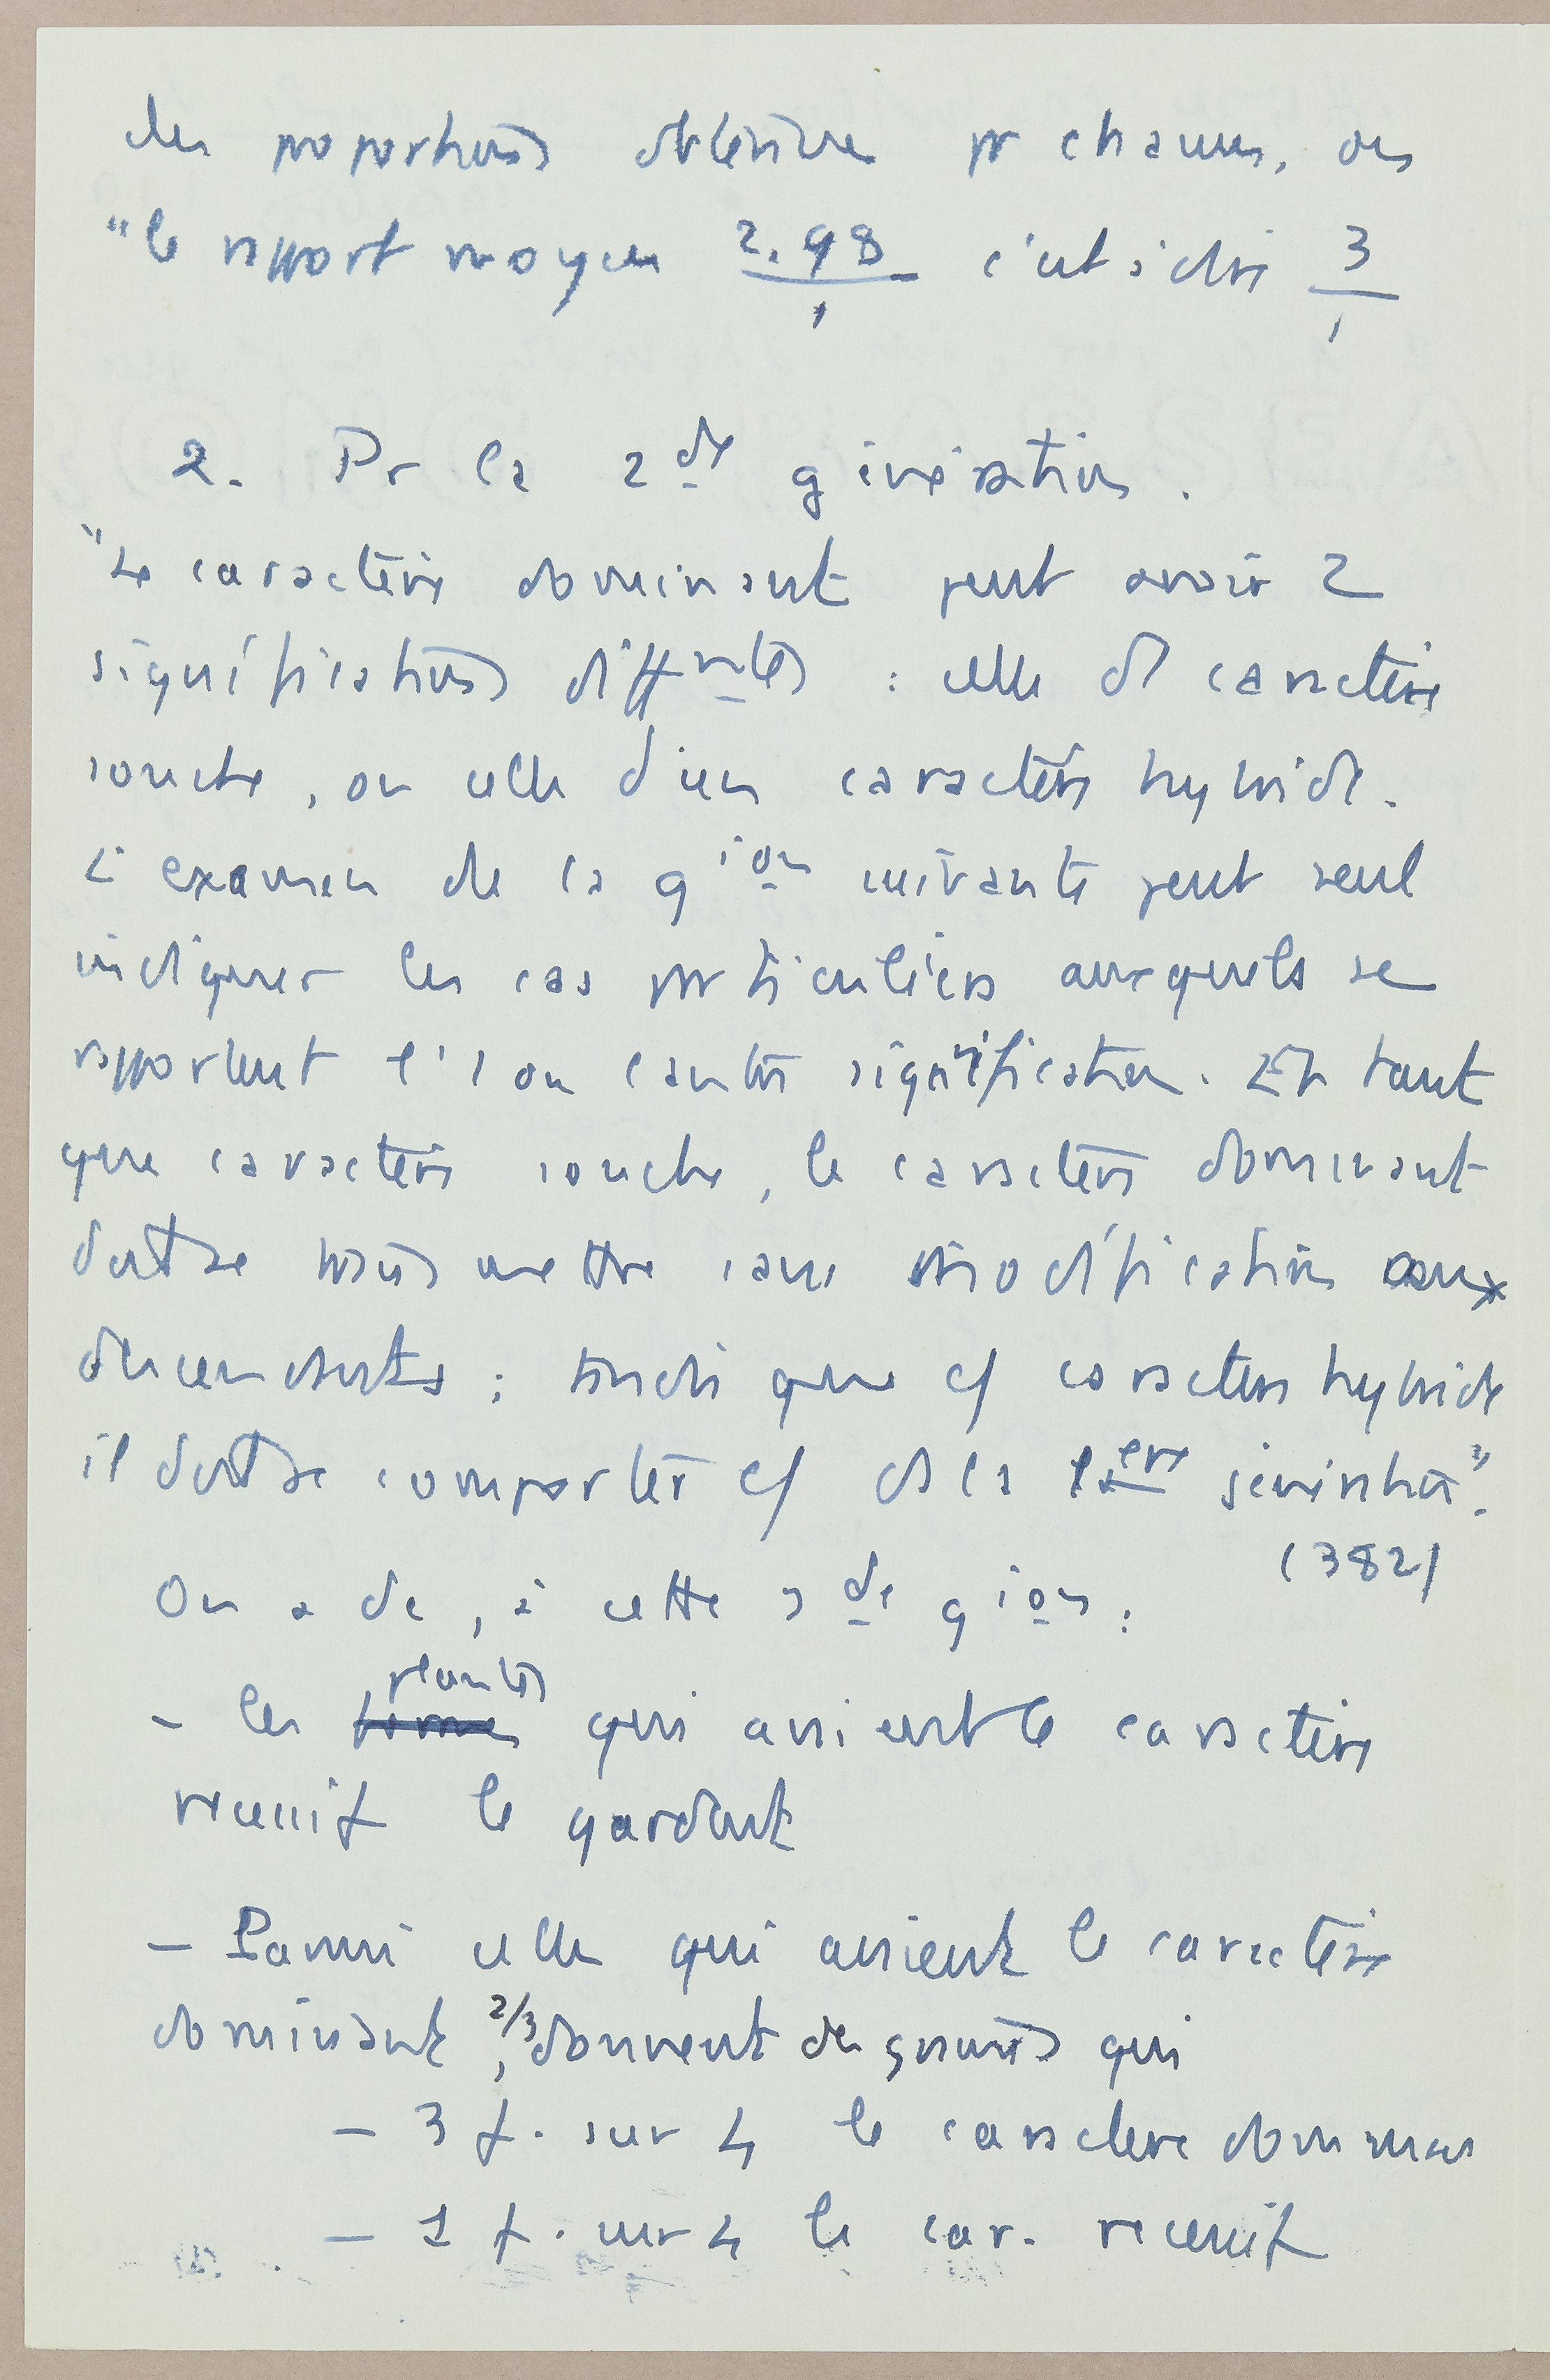 des proportions obtenues pr chacun, on a
"le rapport moyen 2.98/1 c'est à dire 3/1
2. Pr la 2de génération.
"Le caractère dominant peut avoir 2
significations diffntes : celle de caractère
souche, ou celle d'un caractère hybride.
L'examen de la gion suivante peut seul
indiquer les cas particuliers auxquels se
rapportent l'1 ou l'autre signification. En tant
que caractère souche, le caractère dominant
doit se transmettre sans modification aux
descendants ; tandis que c/ caractère hybride
il doit se comporter c/ ds la 1ère génération".
(382)
On a dc, à cette 2de gion :
- les plantes qui avaient le caractère
récessif le gardent
- Parmi celles qui avaient le caractère
dominant, 2/3 donnent des graines qui
- 3 f. sur 4 le caractère dominant
- 1 f. sur 4 le car. récessif